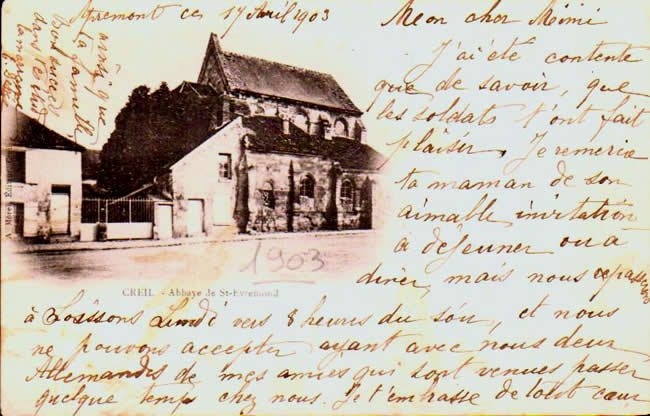 Apremont ces 17 Avril 1903
Mon cher Mimi
J'ai été contente
que de savoir, que
les soldats t'ont fait
plaisir, Je remercie
ta maman de son
aimable invitation
à déjeuner ou à
dîner, mais nous repasserons
à Soissons Lundi vers 8 heures du soir, et nous
ne pouvons accepter ayant avec nous deux
Allemandes de mes amies qui sont venues passer
quelque temps chez nous. Je t'embrasse de tout cœur
ainsi que
ta famille
1903
CREIL. - Abbaye de St-Evremond